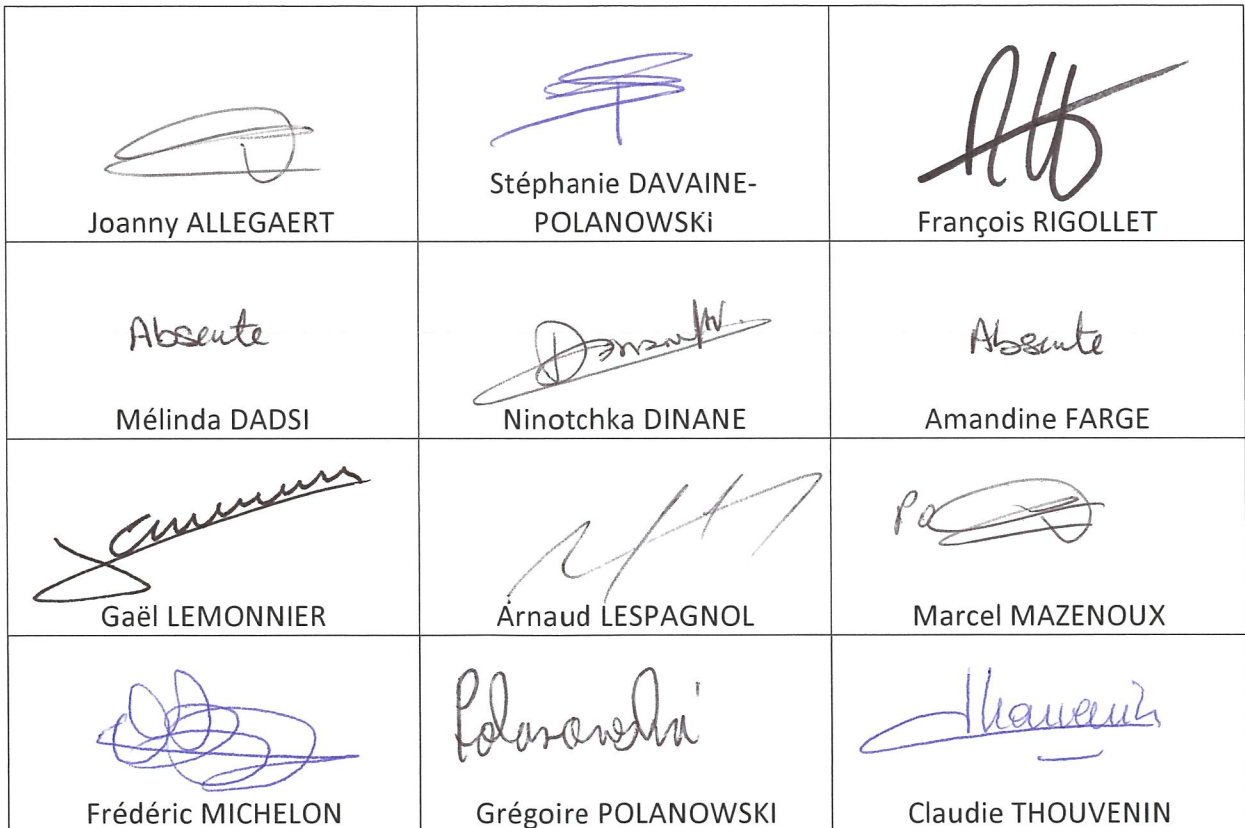 Joanny ALLEGAERT
Stéphanie DAVAINE-
POLANOWSKi
François RIGOLLET
Absente
Mélinda DADSI
Ninotchka DINANE
Absente
Amandine FARGE
Gaël LEMONNIER
Arnaud LESPAGNOL
Po
Marcel MAZENOUX
Frédéric MICHELON
Polanowski
Grégoire POLANOWSKI
Thouvenin
Claudie THOUVENIN